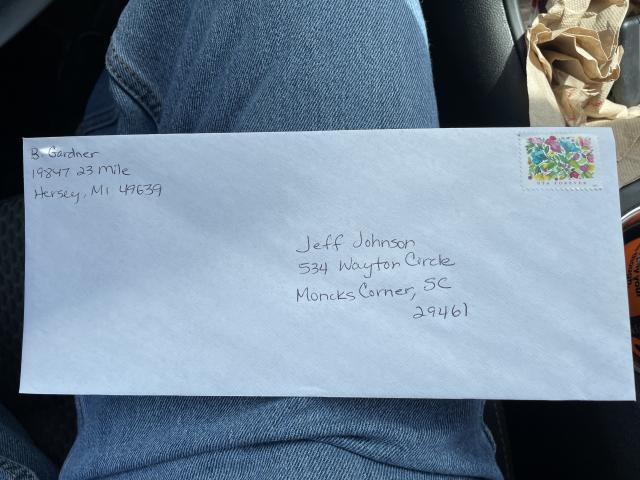 B. Gardner
19847 23 Mile
Hersey, MI 49639
USA FOREVER
Jeff Johnson
534 Waytor Circle
Moncks Corner, SC
29461